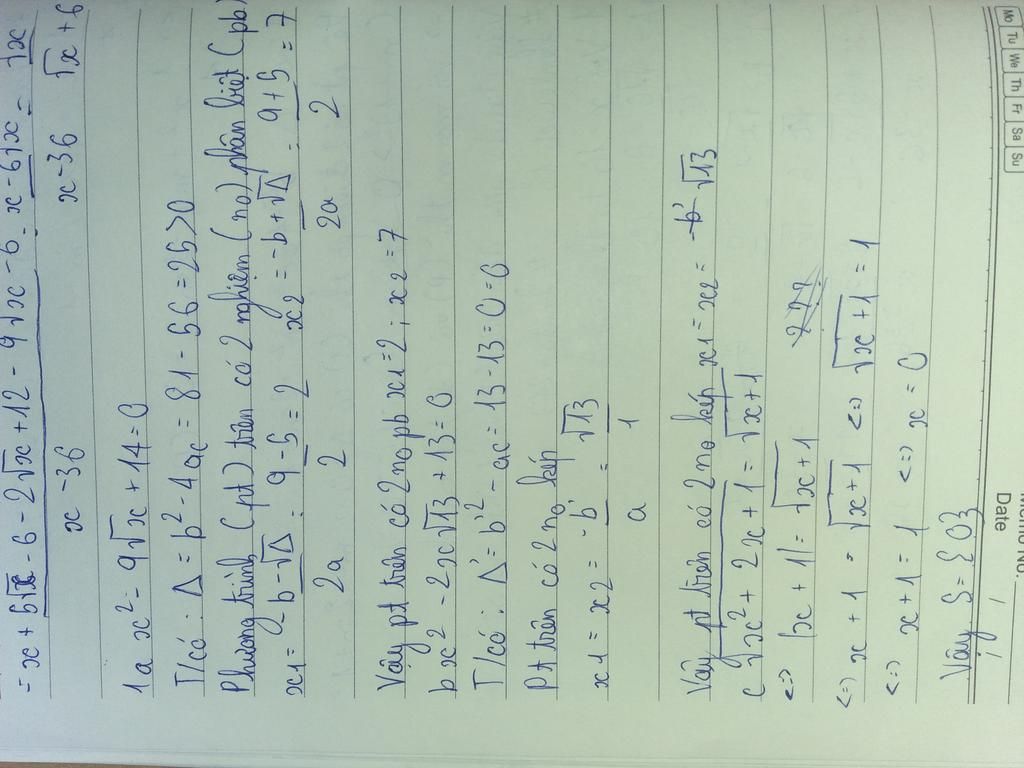 = x + 5√x - 6 - 2√x + 12 - 9√x - 6 = x - 6√x = √x
x - 36 x - 36 √x + 6
1a x² - 9√x + 14 = 0
T/có : Δ = b² - 4ac = 81 - 56 = 25 > 0
Phương trình (pt) trên có 2 nghiệm (n₀) phân biệt (pb)
x1 = -b - √Δ = 9 - 5 = 2 x2 = -b + √Δ = 9 + 5 = 7
2a 2 2a 2
Vậy pt trên có 2 n₀ pb x1 = 2 ; x2 = 7
b x² - 2x√13 + 13 = 0
T/có : Δ' = b'² - ac = 13 - 13 = 0 = 0
Pt trên có 2 n₀ kép
x1 = x2 = -b' = √13
a 1
Vậy pt trên có 2 n₀ kép x1 = x2 = √13
c √x² + 2x + 1 = √x + 1
<=> |x + 1| = √x + 1
<=> x + 1 = √x + 1 <=> √x + 1 = 1
<=> x + 1 = 1 <=> x = 0
Vậy S = { 0 }
Memo No.
Date / /
Mo Tu We Th Fr Sa Su